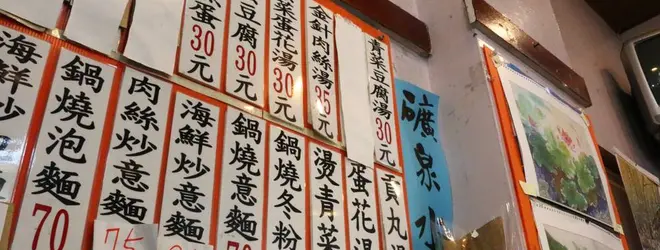 青菜豆腐湯30元
金針肉絲湯35元
菜蛋花湯30元
豆腐30元
蛋30元
礦泉水
貢丸湯
蛋花湯
燙青菜
鍋燒冬粉
鍋燒意麵
海鮮炒意麵
肉絲炒意麵
鍋燒泡麵70
海鮮炒
75